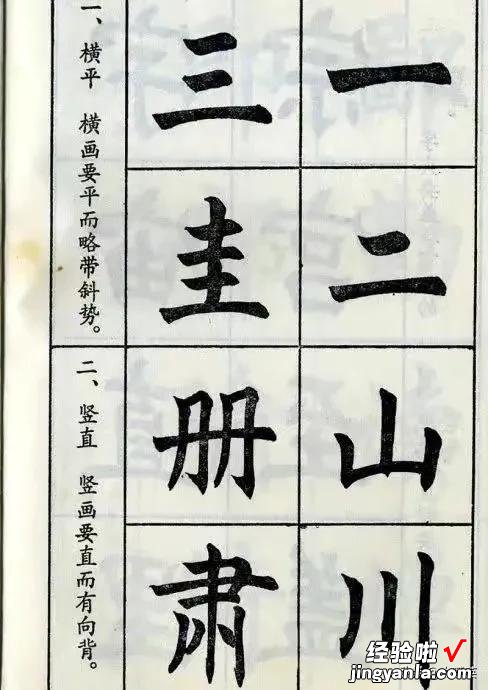 一、横平 横画要平而略带斜势。
一
二
三
圭
二、竖直 竖画要直而有向背。
山
川
册
肃
经验啦√
jingyanla.com